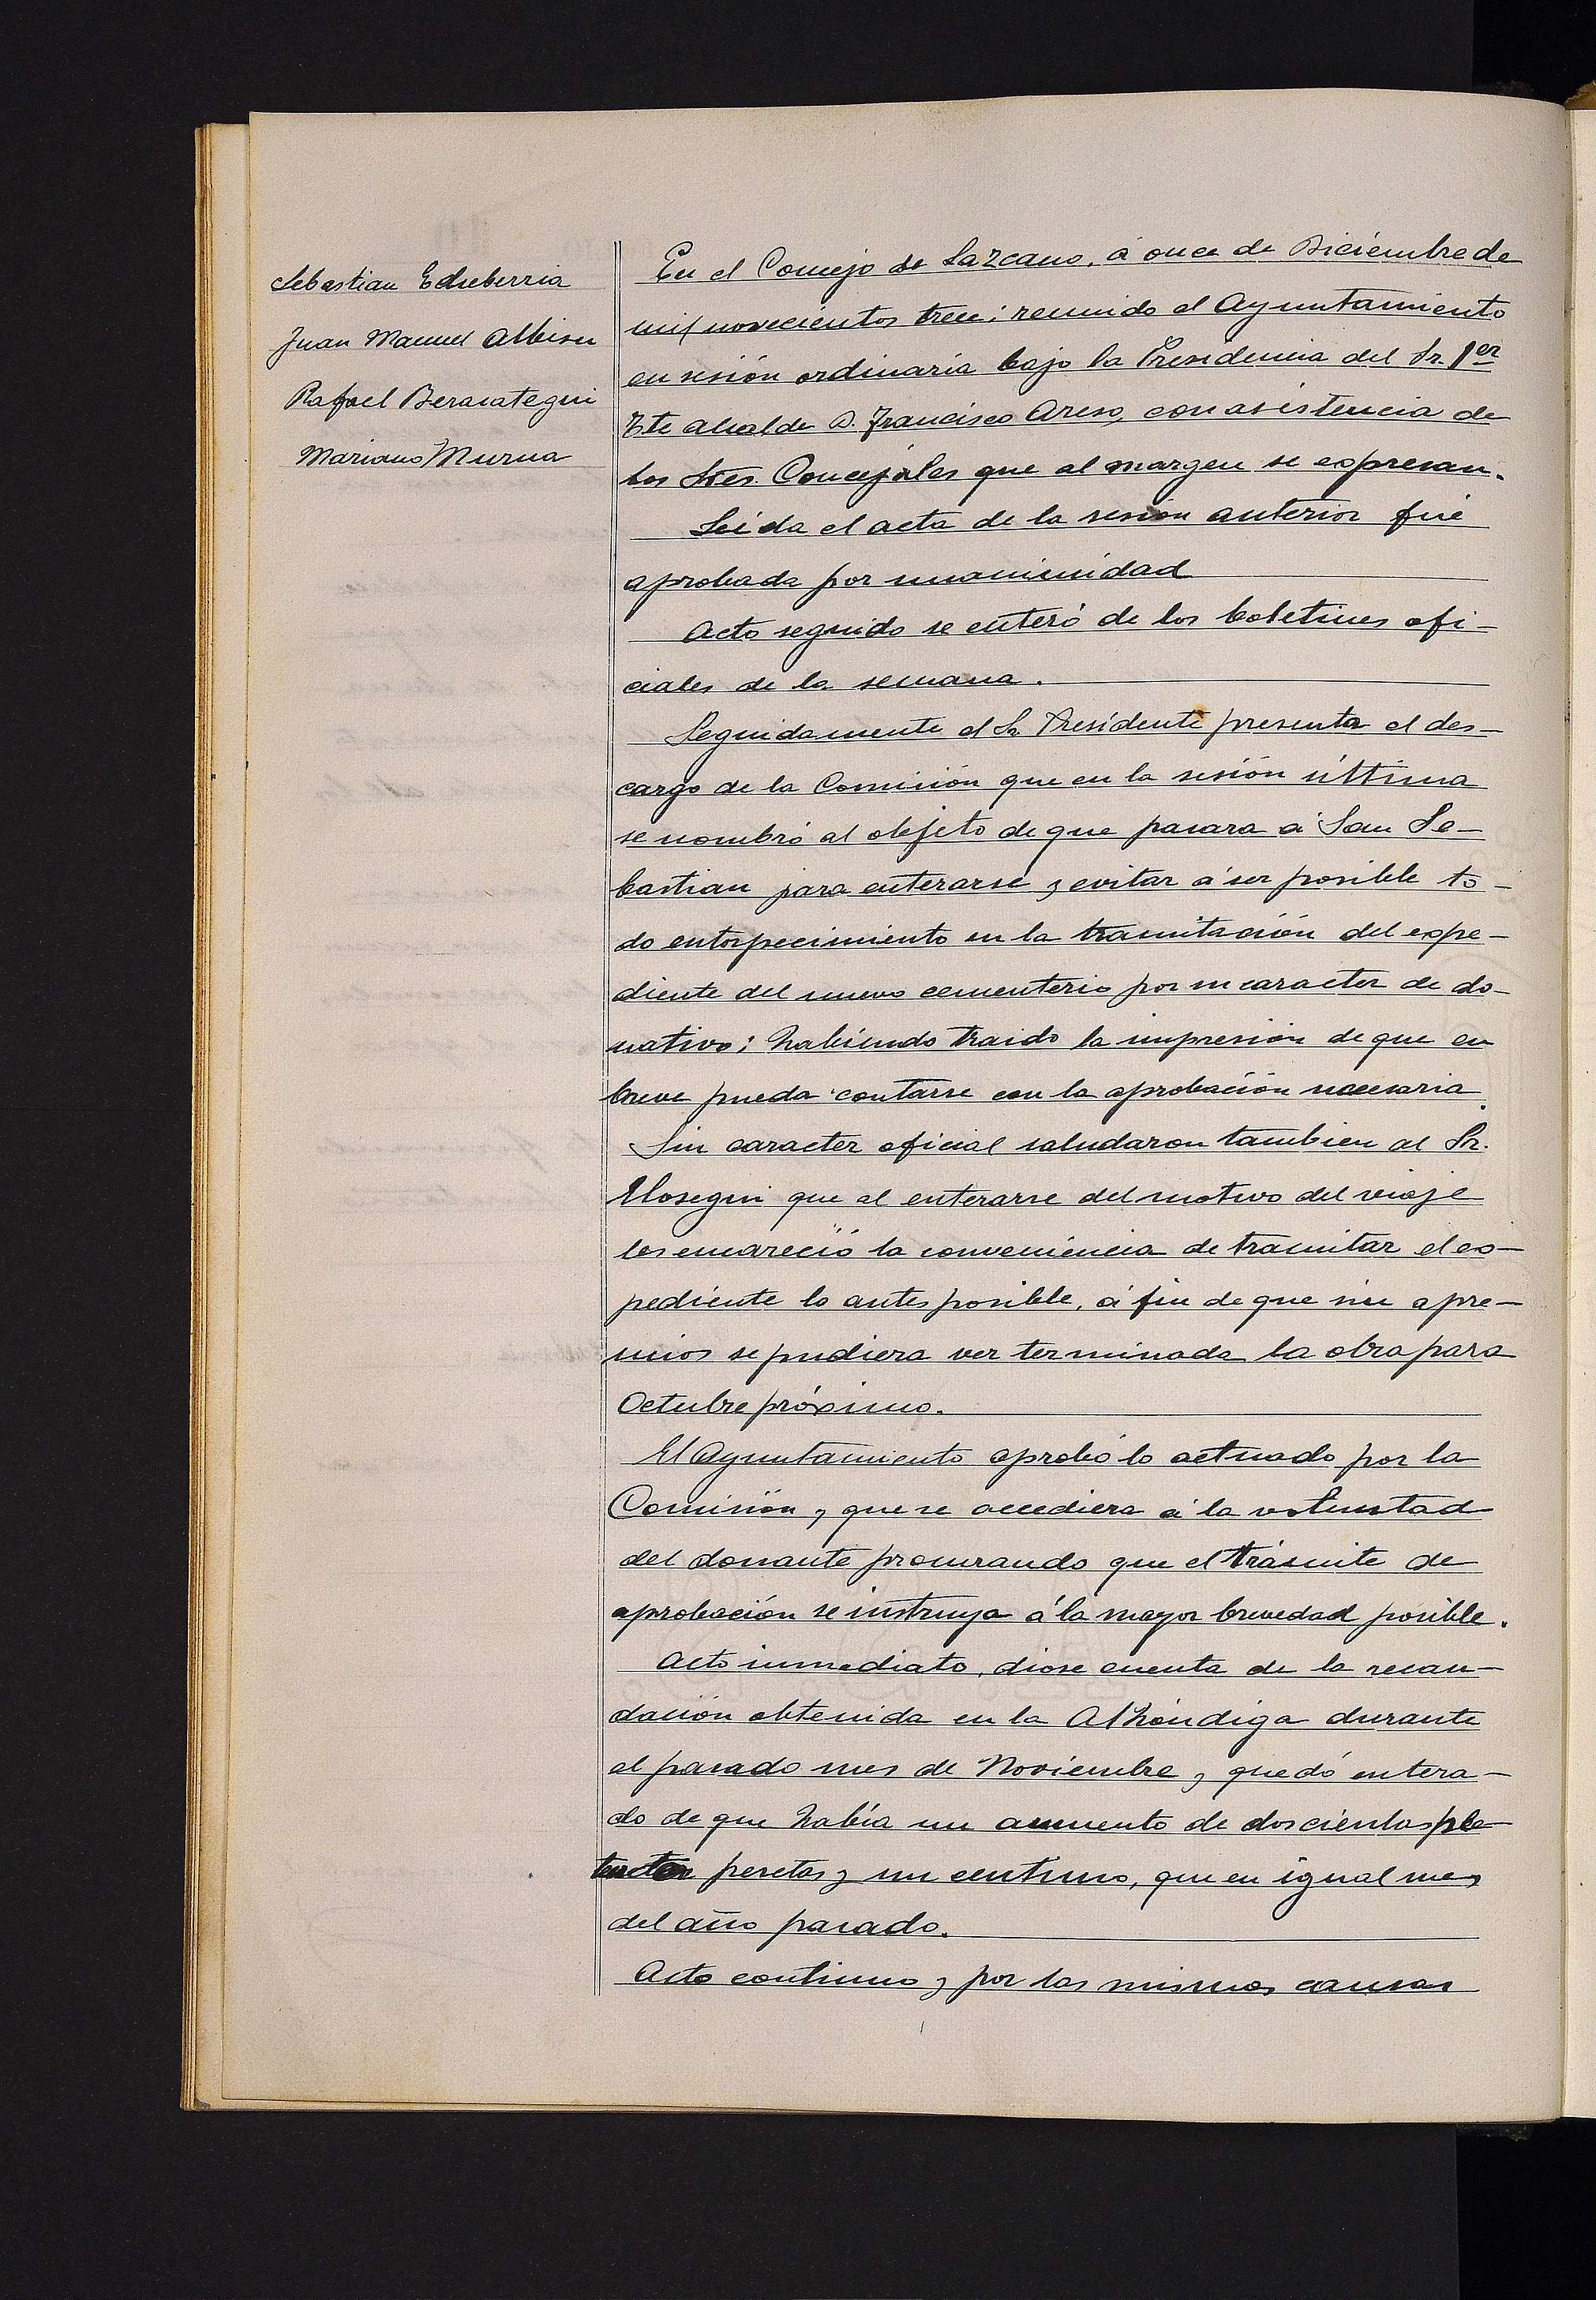 Sebastian Echeberria
Juan Manuel Albisu
Rafael Berasategui
Mariano Murua
En el Concejo de Lazcano, á once de Diciembre de
mil novecientos trece; reunido el Ayuntamiento
en sesión ordinaria bajo la Presidencia del Sr. 1er
Tte alcalde D. Francisco Areso, con asistencia de
los Sres. Concejales que al margen se expresan.
Leida el acta de la sesión anterior fué
aprobada por unanimidad
Acto seguido se enteró de los boletines ofi-
ciales de la semana.
Seguidamente el Sr Presidente presenta el des-
cargo de la Comisión que en la sesión última
se nombró al objeto de que pasara á San Se-
bastian para enterarse y evitar á ser posible to-
do entorpecimiento en la tramitación del expe-
diente del nuevo cementerio por su caracter de do-
nativo; habiendo traido la impresión de que en
breve pueda contarse con la aprobación necesaria.
Sin caracter oficial saludaron tambien al Sr.
Elosegui que al enterarse del motivo del viaje
les encareció la conveniencia de tramitar el ex-
pediente lo antes posible, á fin de que sin apre-
mios se pudiera ver terminada la obra para
Octubre próximo.
El Ayuntamiento aprobó lo actuado por la
Comisión y que se accediera á la voluntad
del donante procurando que el trámite de
aprobación se instruya á la mayor brevedad posible.
Acto inmediato, diose cuenta de la recau-
dación obtenida en la Alhóndiga durante
el pasado mes de Noviembre y quedó entera-
do de que había un aumento de doscientas
pesetas y un centimo, que en igual mes
del año pasado.
Acto continuo y por las mismas causas